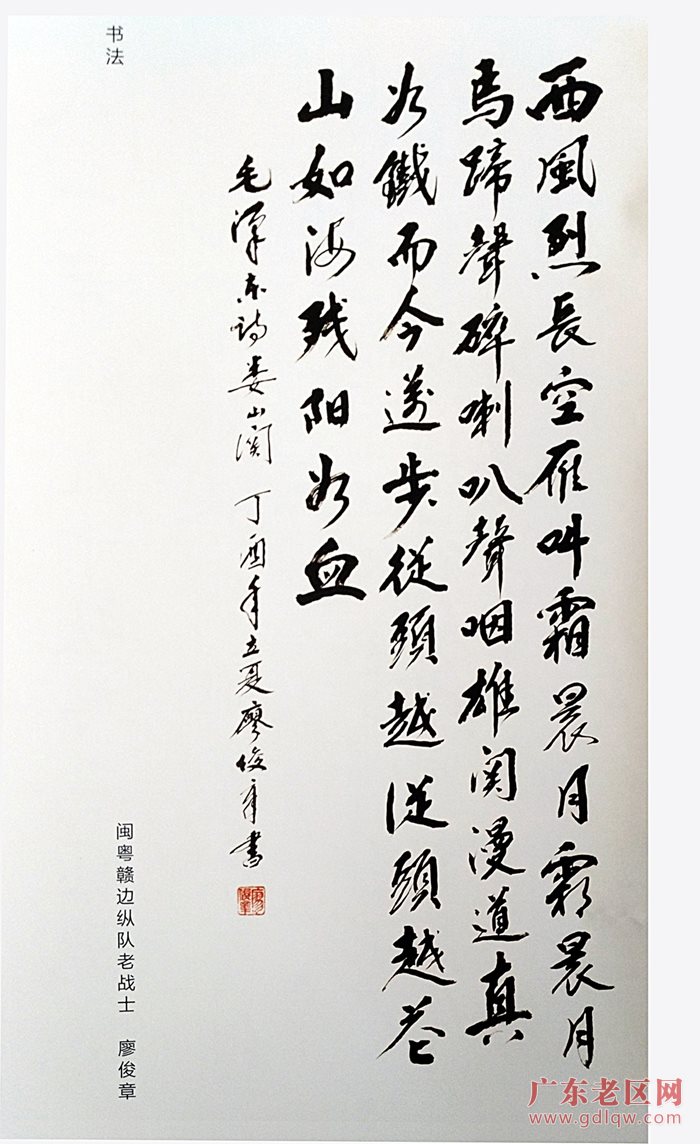 西風烈長空雁叫霜晨月霜晨月
馬蹄聲碎喇叭聲咽雄関漫道真
如鐵而今邁步從頭越從頭越苍
山如海残阳如血
毛泽东诗娄山関 丁酉年立夏廖俊章書
书法
闽粤赣边纵队老战士 廖俊章
广东老区网
www.gdlqw.com